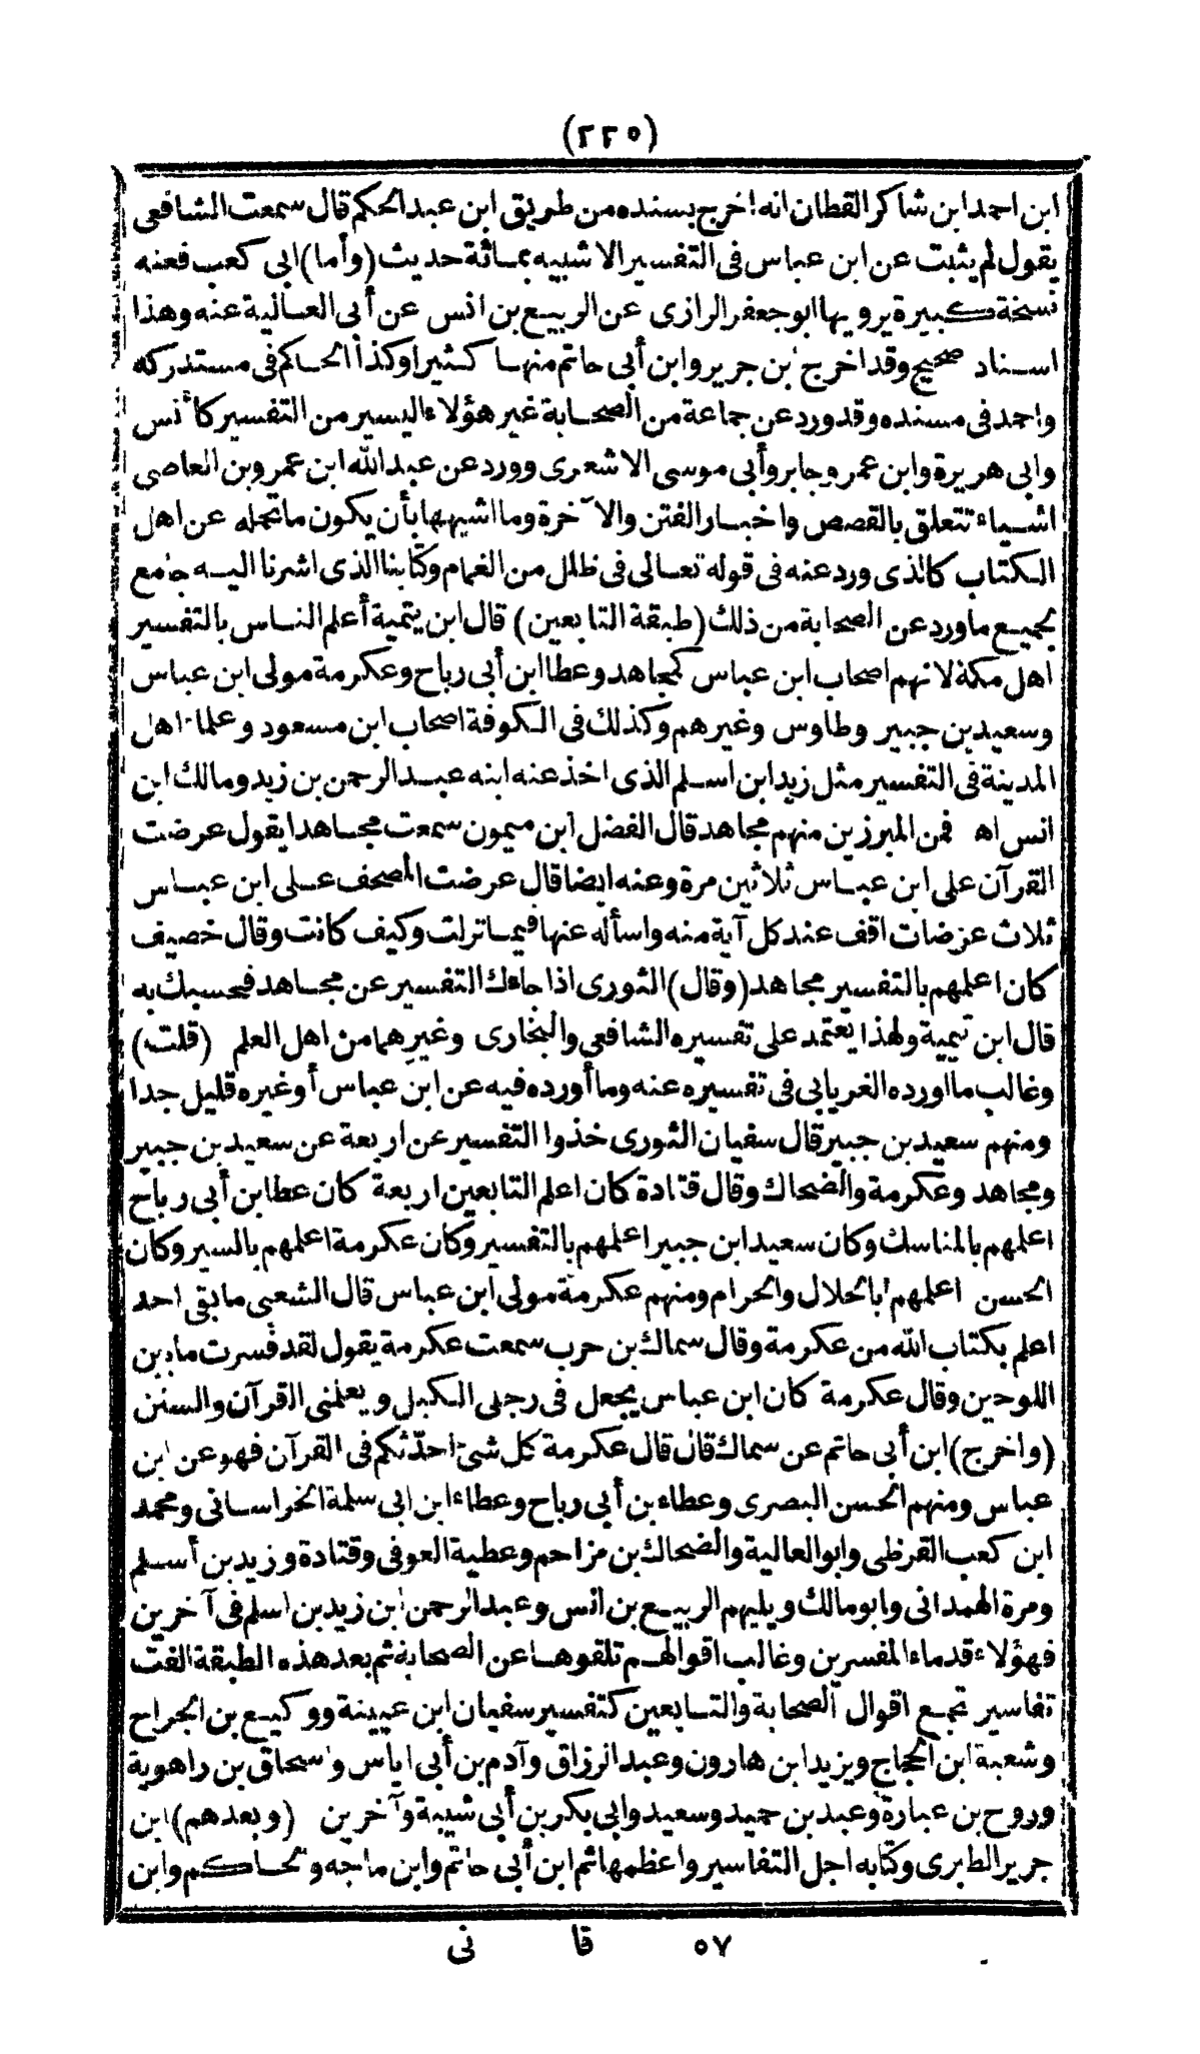 (٢٢٥)
ابن احمد ابن شاكر القطان انه اخرج بسنده من طريق ابن عبد الحكم قال سمعت الشافعى
يقول لم يثبت عن ابن عباس فى التفسير الا شبيه بمائة حديث (وأما) ابى كعب فعنه
نسخة كبيرة يرويها ابو جعفر الرازى عن الربيع بن انس عن أبى العالية عنه وهذا
اسناد صحيح وقد اخرج بن جرير وابن أبى حاتم منها كثيرا وكذا الحاكم فى مستدركه
واحمد فى مسنده وقد ورد عن جماعة من الصحابة غير هؤلاء اليسير من التفسير كأنس
وابى هريرة وابن عمر وجابر وأبى موسى الاشعرى وورد عن عبد الله ابن عمر وبن العاصى
اشياء تتعلق بالقصص واخبار الفتن والآخرة وما اشبهها بأن يكون ما تحمله عن اهل
الكتاب كالذى ورد عنه فى قوله تعالى فى ظلل من الغمام وكتابنا الذى اشرنا اليه جامع
لجميع ما ورد عن الصحابة من ذلك (طبقة التابعين) قال ابن يتمية أعلم الناس بالتفسير
اهل مكة لانهم اصحاب ابن عباس كمجاهد وعطا ابن أبى رباح وعكرمة مولى ابن عباس
وسعيد بن جبير وطاوس وغيرهم وكذلك فى الكوفة اصحاب ابن مسعود وعلماء اهل
المدينة فى التفسير مثل زيد ابن اسلم الذى اخذ عنه ابنه عبد الرحمن بن زيد ومالك ابن
انس اه فمن المبرزين منهم مجاهد قال الفضل ابن ميمون سمعت مجاهدا يقول عرضت
القرآن على ابن عباس ثلاثين مرة وعنه ايضا قال عرضت المصحف على ابن عباس
ثلاث عرضات اقف عند كل آية منه واسأله عنها فيما نزلت وكيف كانت وقال خصيف
كان اعلمهم بالتفسير مجاهد (وقال) الثورى اذا جاءك التفسير عن مجاهد فحسبك به
قال ابن تيمية ولهذا يعتمد على تفسيره الشافعى والبخارى وغيرهما من اهل العلم (قلت)
وغالب ما اورده الفريابى فى تفسيره عنه وما أورده فيه عن ابن عباس أو غيره قليل جدا
ومنهم سعيد بن جبير قال سفيان الثورى خذوا التفسير عن اربعة عن سعيد بن جبير
ومجاهد وعكرمة والضحاك وقال قتادة كان اعلم التابعين اربعة كان عطا بن أبى رباح
اعلمهم بالمناسك وكان سعيد ابن جبير اعلمهم بالتفسير وكان عكرمة اعلمهم بالسير وكان
الحسن اعلمهم بالحلال والحرام ومنهم عكرمة مولى ابن عباس قال الشعبى ما بقى احد
اعلم بكتاب الله من عكرمة وقال سماك بن حرب سمعت عكرمة يقول لقد فسرت ما بين
اللوحين وقال عكرمة كان ابن عباس يجعل فى رجلى الكبل ويعلمنى القرآن والسنن
(واخرج) ابن أبى حاتم عن سماك قال قال عكرمة كل شئ احدثكم فى القرآن فهو عن ابن
عباس ومنهم الحسن البصرى وعطاء بن أبى رباح وعطاء ابن ابى سلمة الخراسانى ومحمد
ابن كعب القرظى وابو العالية والضحاك بن مزاحم وعطية العوفى وقتادة وزيد بن أسلم
ومرة الهمدانى وابو مالك ويليهم الربيع بن انس وعبد الرحمن ابن زيد بن اسلم فى آخرين
فهؤلاء قدماء المفسرين وغالب اقوالهم تلقوها عن الصحابة ثم بعد هذه الطبقة الفت
تفاسير تجمع اقوال الصحابة والتابعين كتفسير سفيان ابن عيينة ووكيع بن الجراح
وشعبة ابن الحجاج ويزيد ابن هارون وعبد الرزاق وآدم بن أبى اياس واسحاق بن راهوية
وروح بن عبارة وعبد بن حميد وسعيد وابى بكر بن أبى شيبة وآخرين (وبعدهم) ابن
جرير الطبرى وكتابه اجل التفاسير واعظمها ثم ابن أبى حاتم وابن ماجه والحاكم وابن
٥٧ قا نى